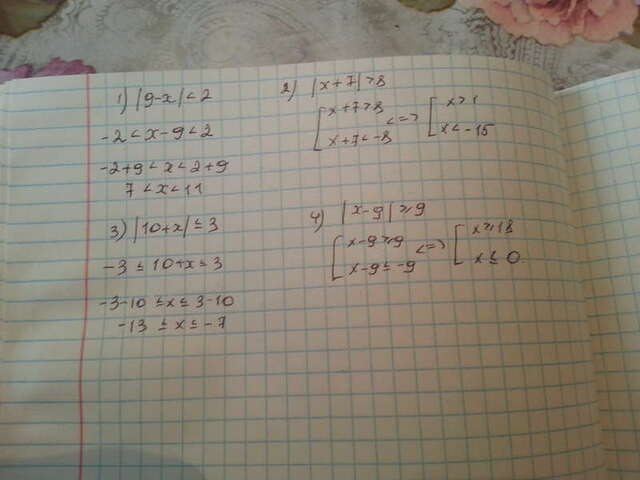 1) |9-x| < 2
-2 < x-9 < 2
-2+9 < x < 2+9
7 < x < 11
2) |x+7| > 8
[ x+7 > 8 <=> [ x > 1
x+7 < -8 x < -15
3) |10+x| ≤ 3
-3 ≤ 10+x ≤ 3
-3-10 ≤ x ≤ 3-10
-13 ≤ x ≤ -7
4) |x-9| ≥ 9
[ x-9 ≥ 9 <=> [ x ≥ 18
x-9 ≤ -9 x ≤ 0